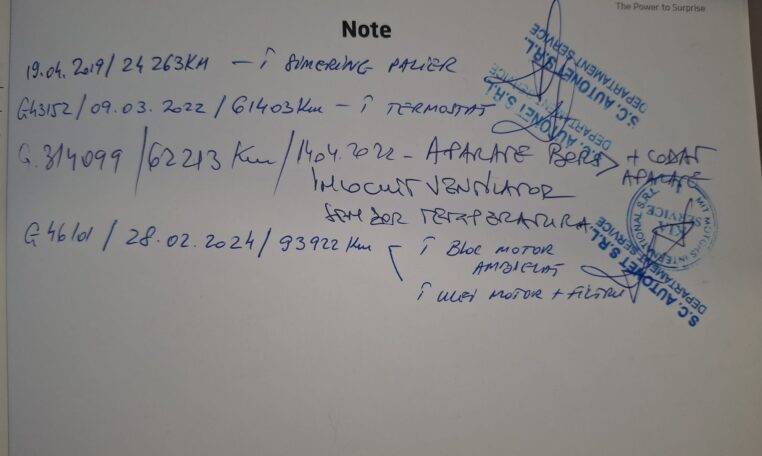 The Power to Surprise
Note
19.04.2019 / 24 263KM - Î SIMERING PALIER
G43152 / 09.03.2022 / 61403Km - Î TERMOSTAT
G.314099 / 62213 Km / 14.04.2022 - APARATE BORD + CODAT
APARATE
INLOCUIT VENTILATOR
SENZOR TEMPERATURA
/ 28.02.2024 / 93922 Km Î BLOC MOTOR
AMBIELAT
Î ULEI MOTOR + FILTRU
S.C. AUTONET S.R.L.
DEPARTAMENT SERVICE
S.C. AUTONET S.R.L.
DEPARTAMENT SERVICE
S.C. AUTONET S.R.L.
DEPARTAMENT SERVICE
MIT MOTORS INTERNATIONAL S.R.L.
KIA
SERVICE